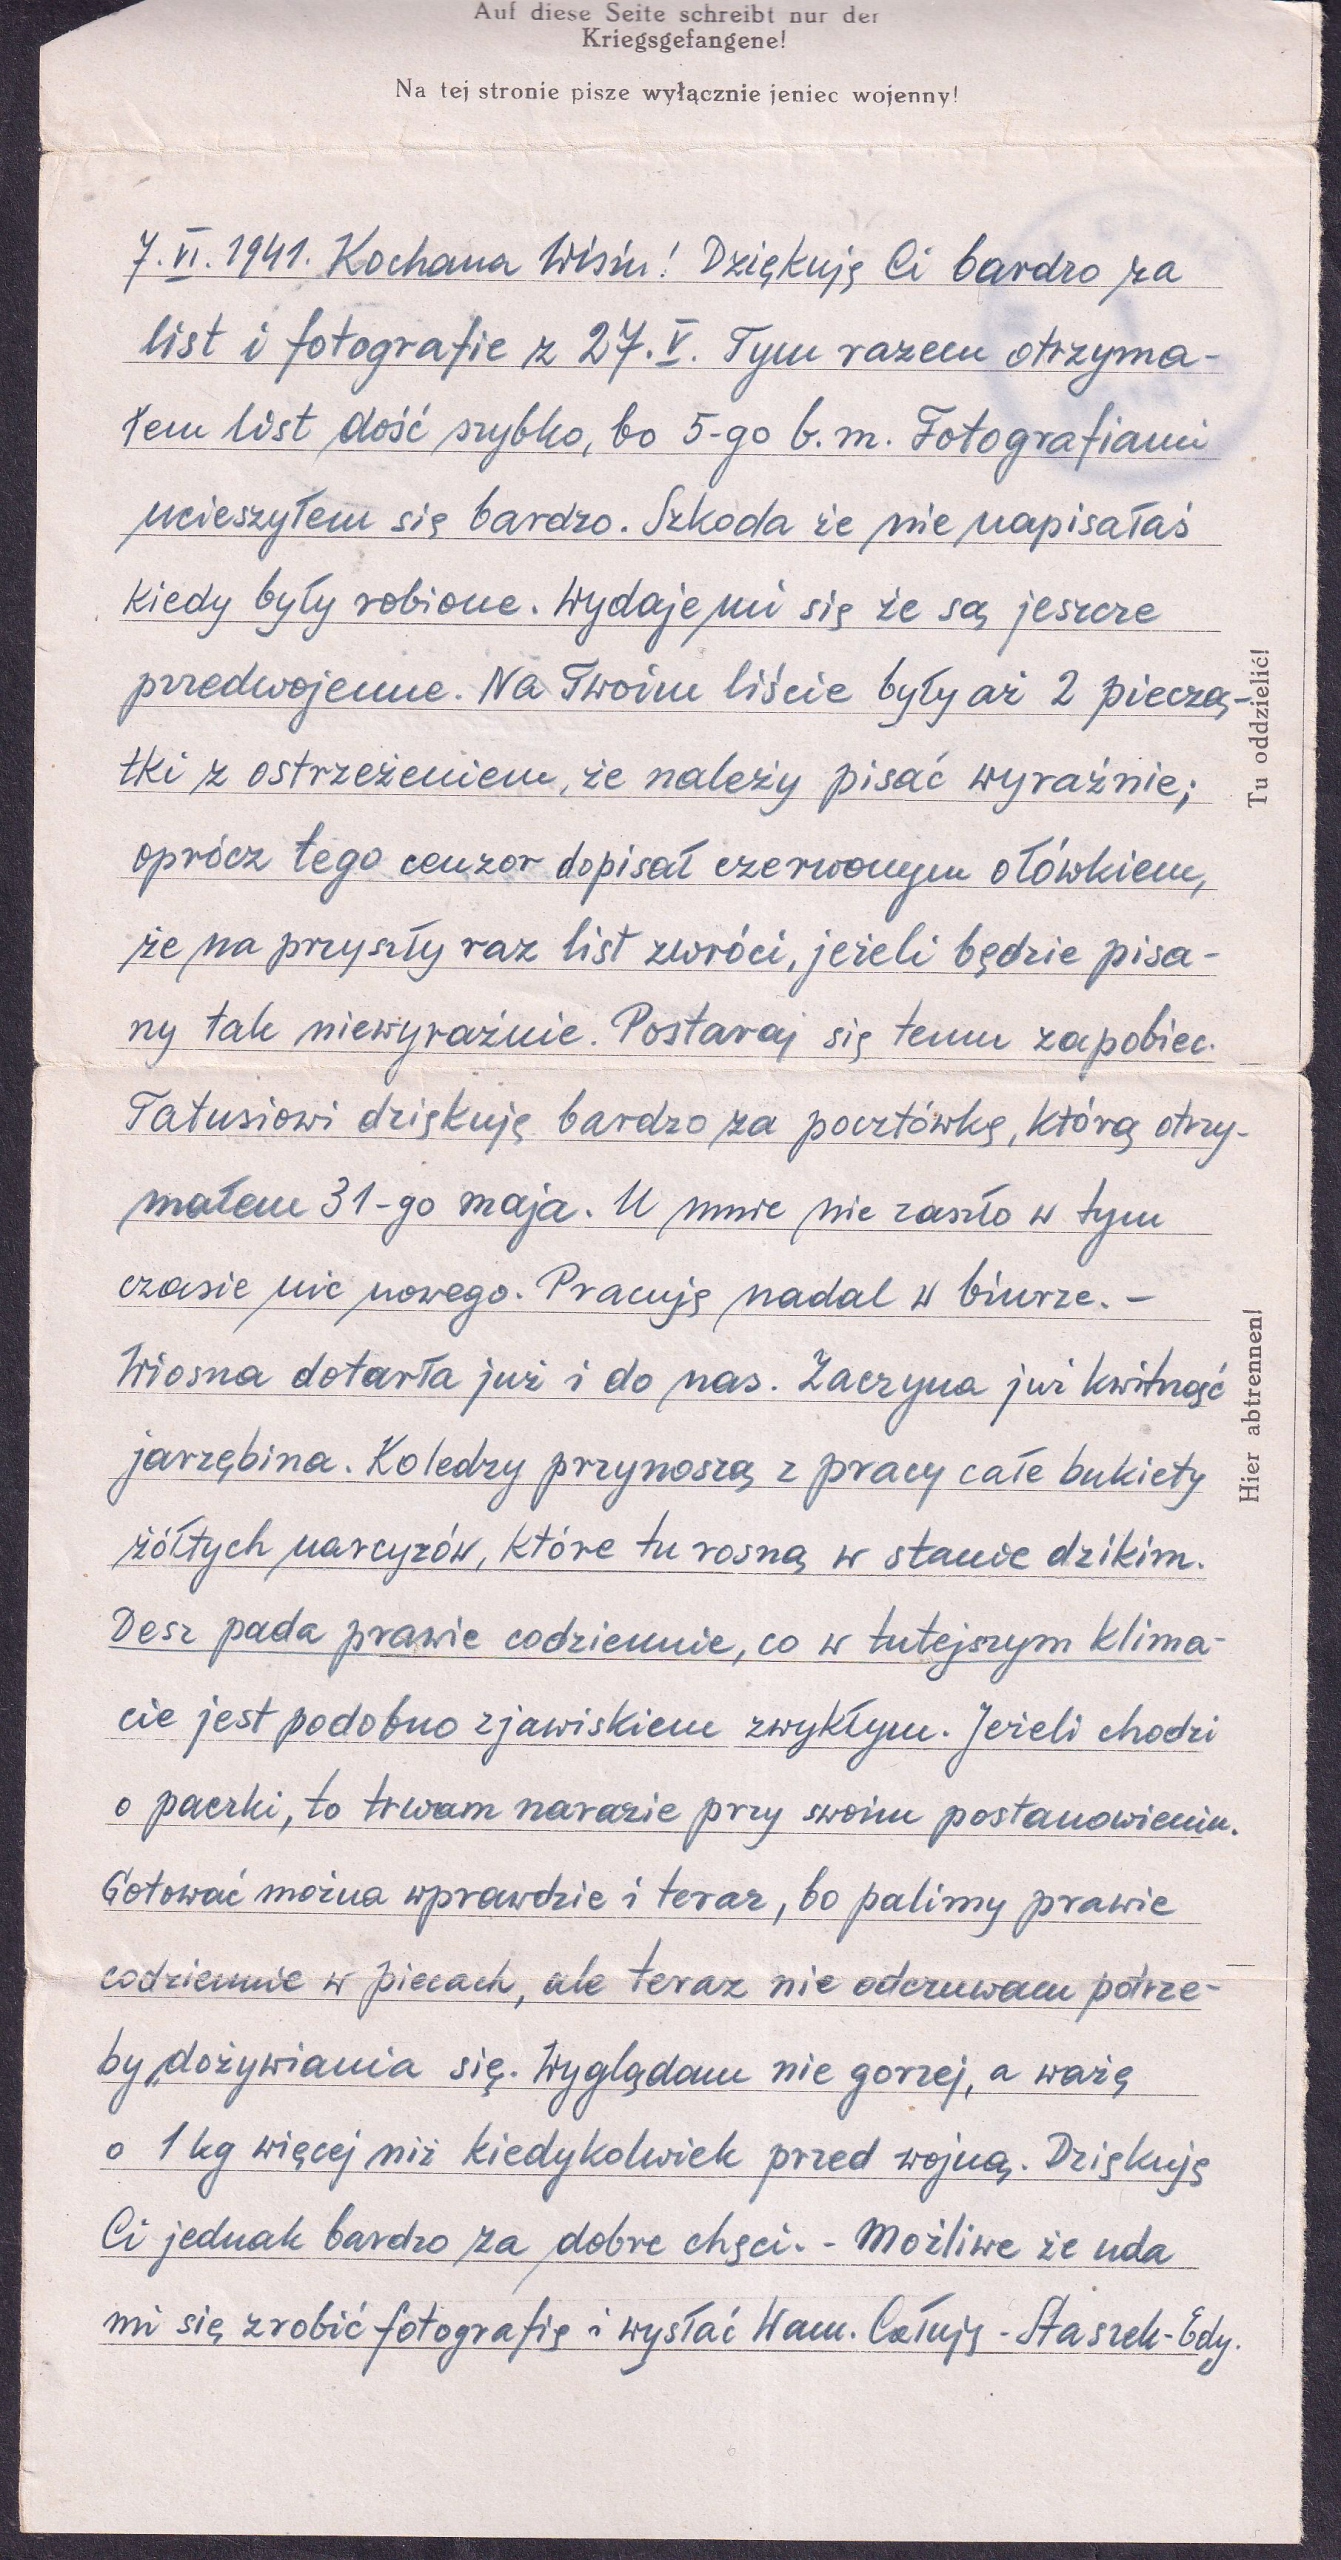 Auf diese Seite schreibt nur der
Kriegsgefangene!
Na tej stronie pisze wyłącznie jeniec wojenny!
7.VI.1941. Kochana Wisiu! Dziękuję Ci bardzo za
list i fotografie z 27.V. Tym razem otrzyma-
łem list dość szybko, bo 5-go b.m. Fotografiami
ucieszyłem się bardzo. Szkoda że nie napisałaś
kiedy były robione. Wydaje mi się że są jeszcze
przedwojenne. Na Twoim liście były aż 2 pieczą-
tki z ostrzeżeniem, że należy pisać wyraźnie;
oprócz tego cenzor dopisał czerwonym ołówkiem,
że na przyszły raz list zwróci, jeżeli będzie pisa-
ny tak niewyraźnie. Postaraj się temu zapobiec.
Tatusiowi dziękuję bardzo za pocztówkę, którą otrzy-
małem 31-go maja. U mnie nie zaszło w tym
czasie nic nowego. Pracuję nadal w biurze. -
Wiosna dotarła już i do nas. Zaczyna już kwitnąć
jarzębina. Koledzy przynoszą z pracy całe bukiety
żółtych narcyzów, które tu rosną w stanie dzikim.
Desz pada prawie codziennie, co w tutejszym klima-
cie jest podobno zjawiskiem zwykłym. Jeżeli chodzi
o paczki, to trwam narazie przy swoim postanowieniu.
Gotować można wprawdzie i teraz, bo palimy prawie
codziennie w piecach, ale teraz nie odczuwam potrze-
by „dożywiania się. Wyglądam nie gorzej, a ważę
o 1 kg więcej niż kiedykolwiek przed wojną. Dziękuję
Ci jednak bardzo za dobre chęci. - Możliwe że uda
mi się zrobić fotografię i wysłać Wam. Całuję - Staszek-Edy.
Tu oddzielić!
Hier abtrennen!